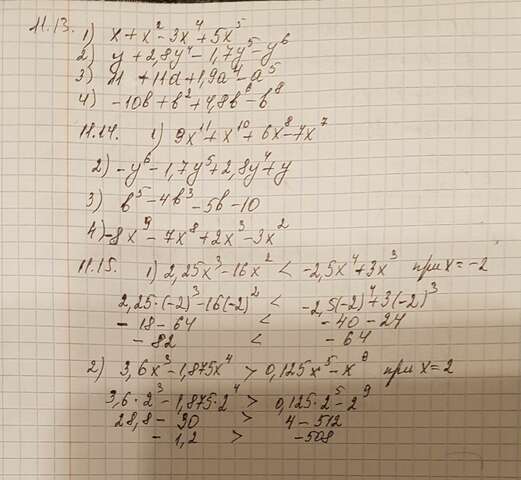 11.13. 1) x + x² - 3x⁴ + 5x⁵
2) y + 2,8y⁴ - 1,7y⁵ - y⁶
3) 11 + 11a + 1,9a⁴ - a⁵
4) -10b + b² + 4,8b⁶ - b⁸
11.14. 1) 9x¹¹ + x¹⁰ + 6x⁸ - 7x⁷
2) -y⁶ - 1,7y⁵ + 2,8y⁴ + y
3) b⁵ - 4b³ - 5b - 10
4) -8x⁹ - 7x⁸ + 2x³ - 3x²
11.15. 1) 2,25x³ - 16x² < -2,5x⁴ + 3x³ при x = -2
2,25·(-2)³ - 16(-2)² < -2,5(-2)⁴ + 3(-2)³
-18 - 64 < -40 - 24
-82 < -64
2) 3,6x³ - 1,875x⁴ > 0,125x⁵ - x⁹ при x = 2
3,6·2³ - 1,875·2⁴ > 0,125·2⁵ - 2⁹
28,8 - 30 > 4 - 512
-1,2 > -508